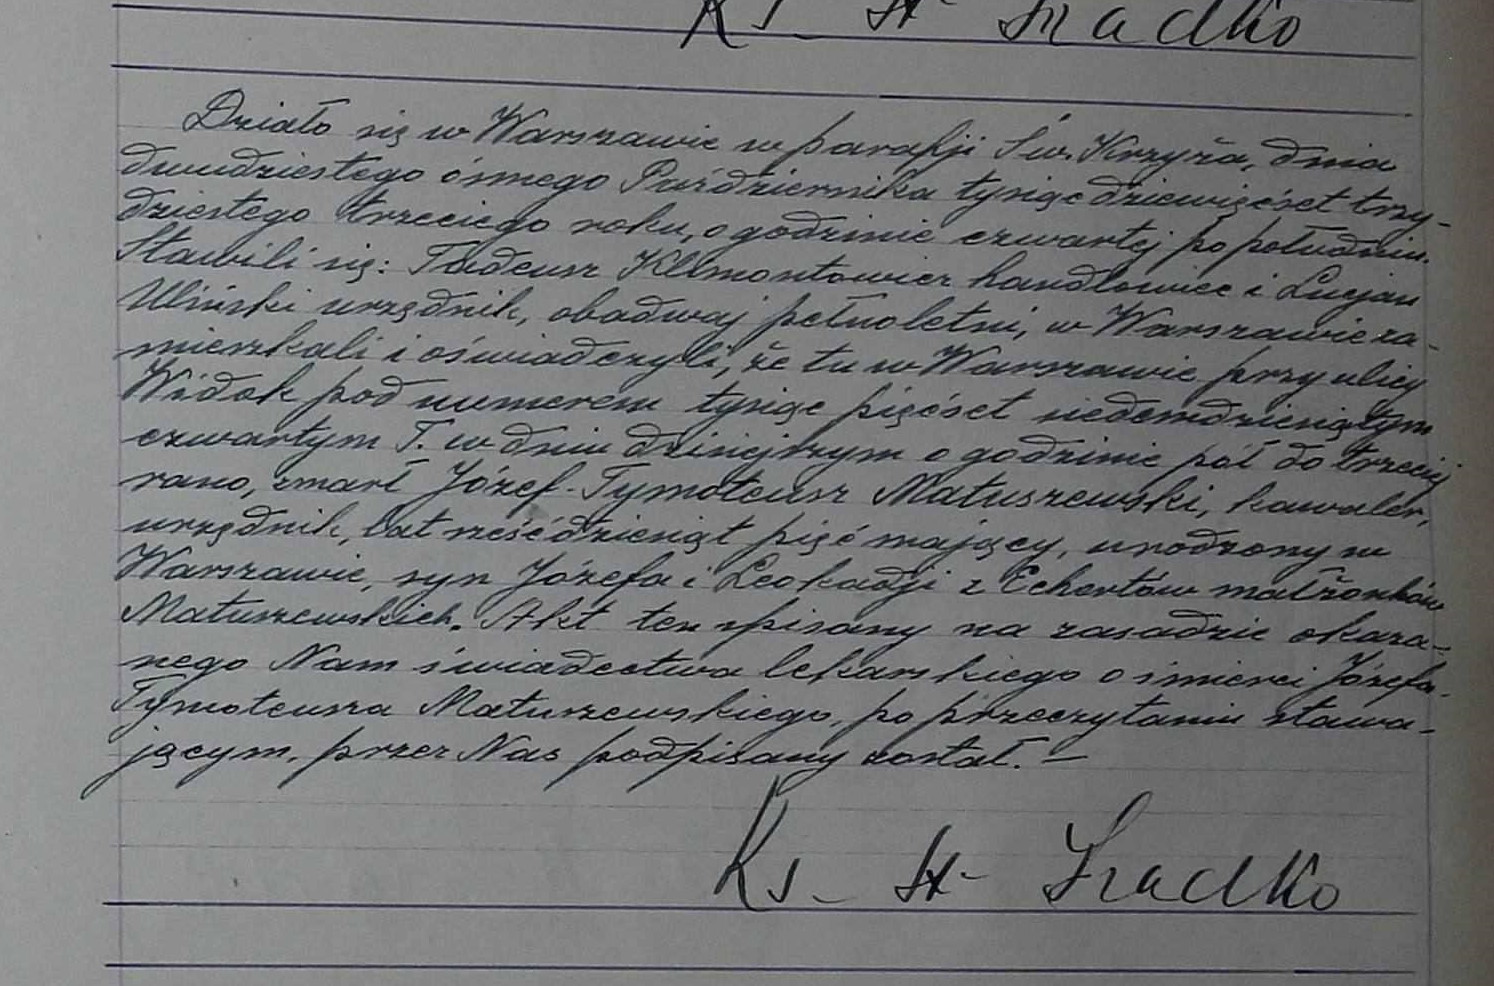 Ks. St. Szadko
Działo się w Warszawie w parafji Św. Krzyża, dnia
dwudziestego ósmego Października tysiąc dziewięćset trzy-
dziestego trzeciego roku, o godzinie czwartej po południu.
Stawili się: Tadeusz Klimontowicz handlowiec i Lucjan
Uliński urzędnik, obadwaj pełnoletni, w Warszawie za-
mieszkali i oświadczyli, że tu w Warszawie przy ulicy
Widok pod numerem tysiąc pięćset siedemdziesiątym
czwartym T. w dniu dzisiejszym o godzinie pół do trzeciej
rano, zmarł Józef-Tymoteusz Matuszewski, kawaler,
urzędnik, lat sześćdziesiąt pięć mający, urodzony w
Warszawie, syn Józefa i Leokadji z Echertów małżonków
Matuszewskich. Akt ten spisany na zasadzie okaza-
nego Nam świadectwa lekarskiego o śmierci Józefa-
Tymoteusza Matuszewskiego, po przeczytaniu stawa-
jącym, przez Nas podpisany został. –
Ks. St. Szadko